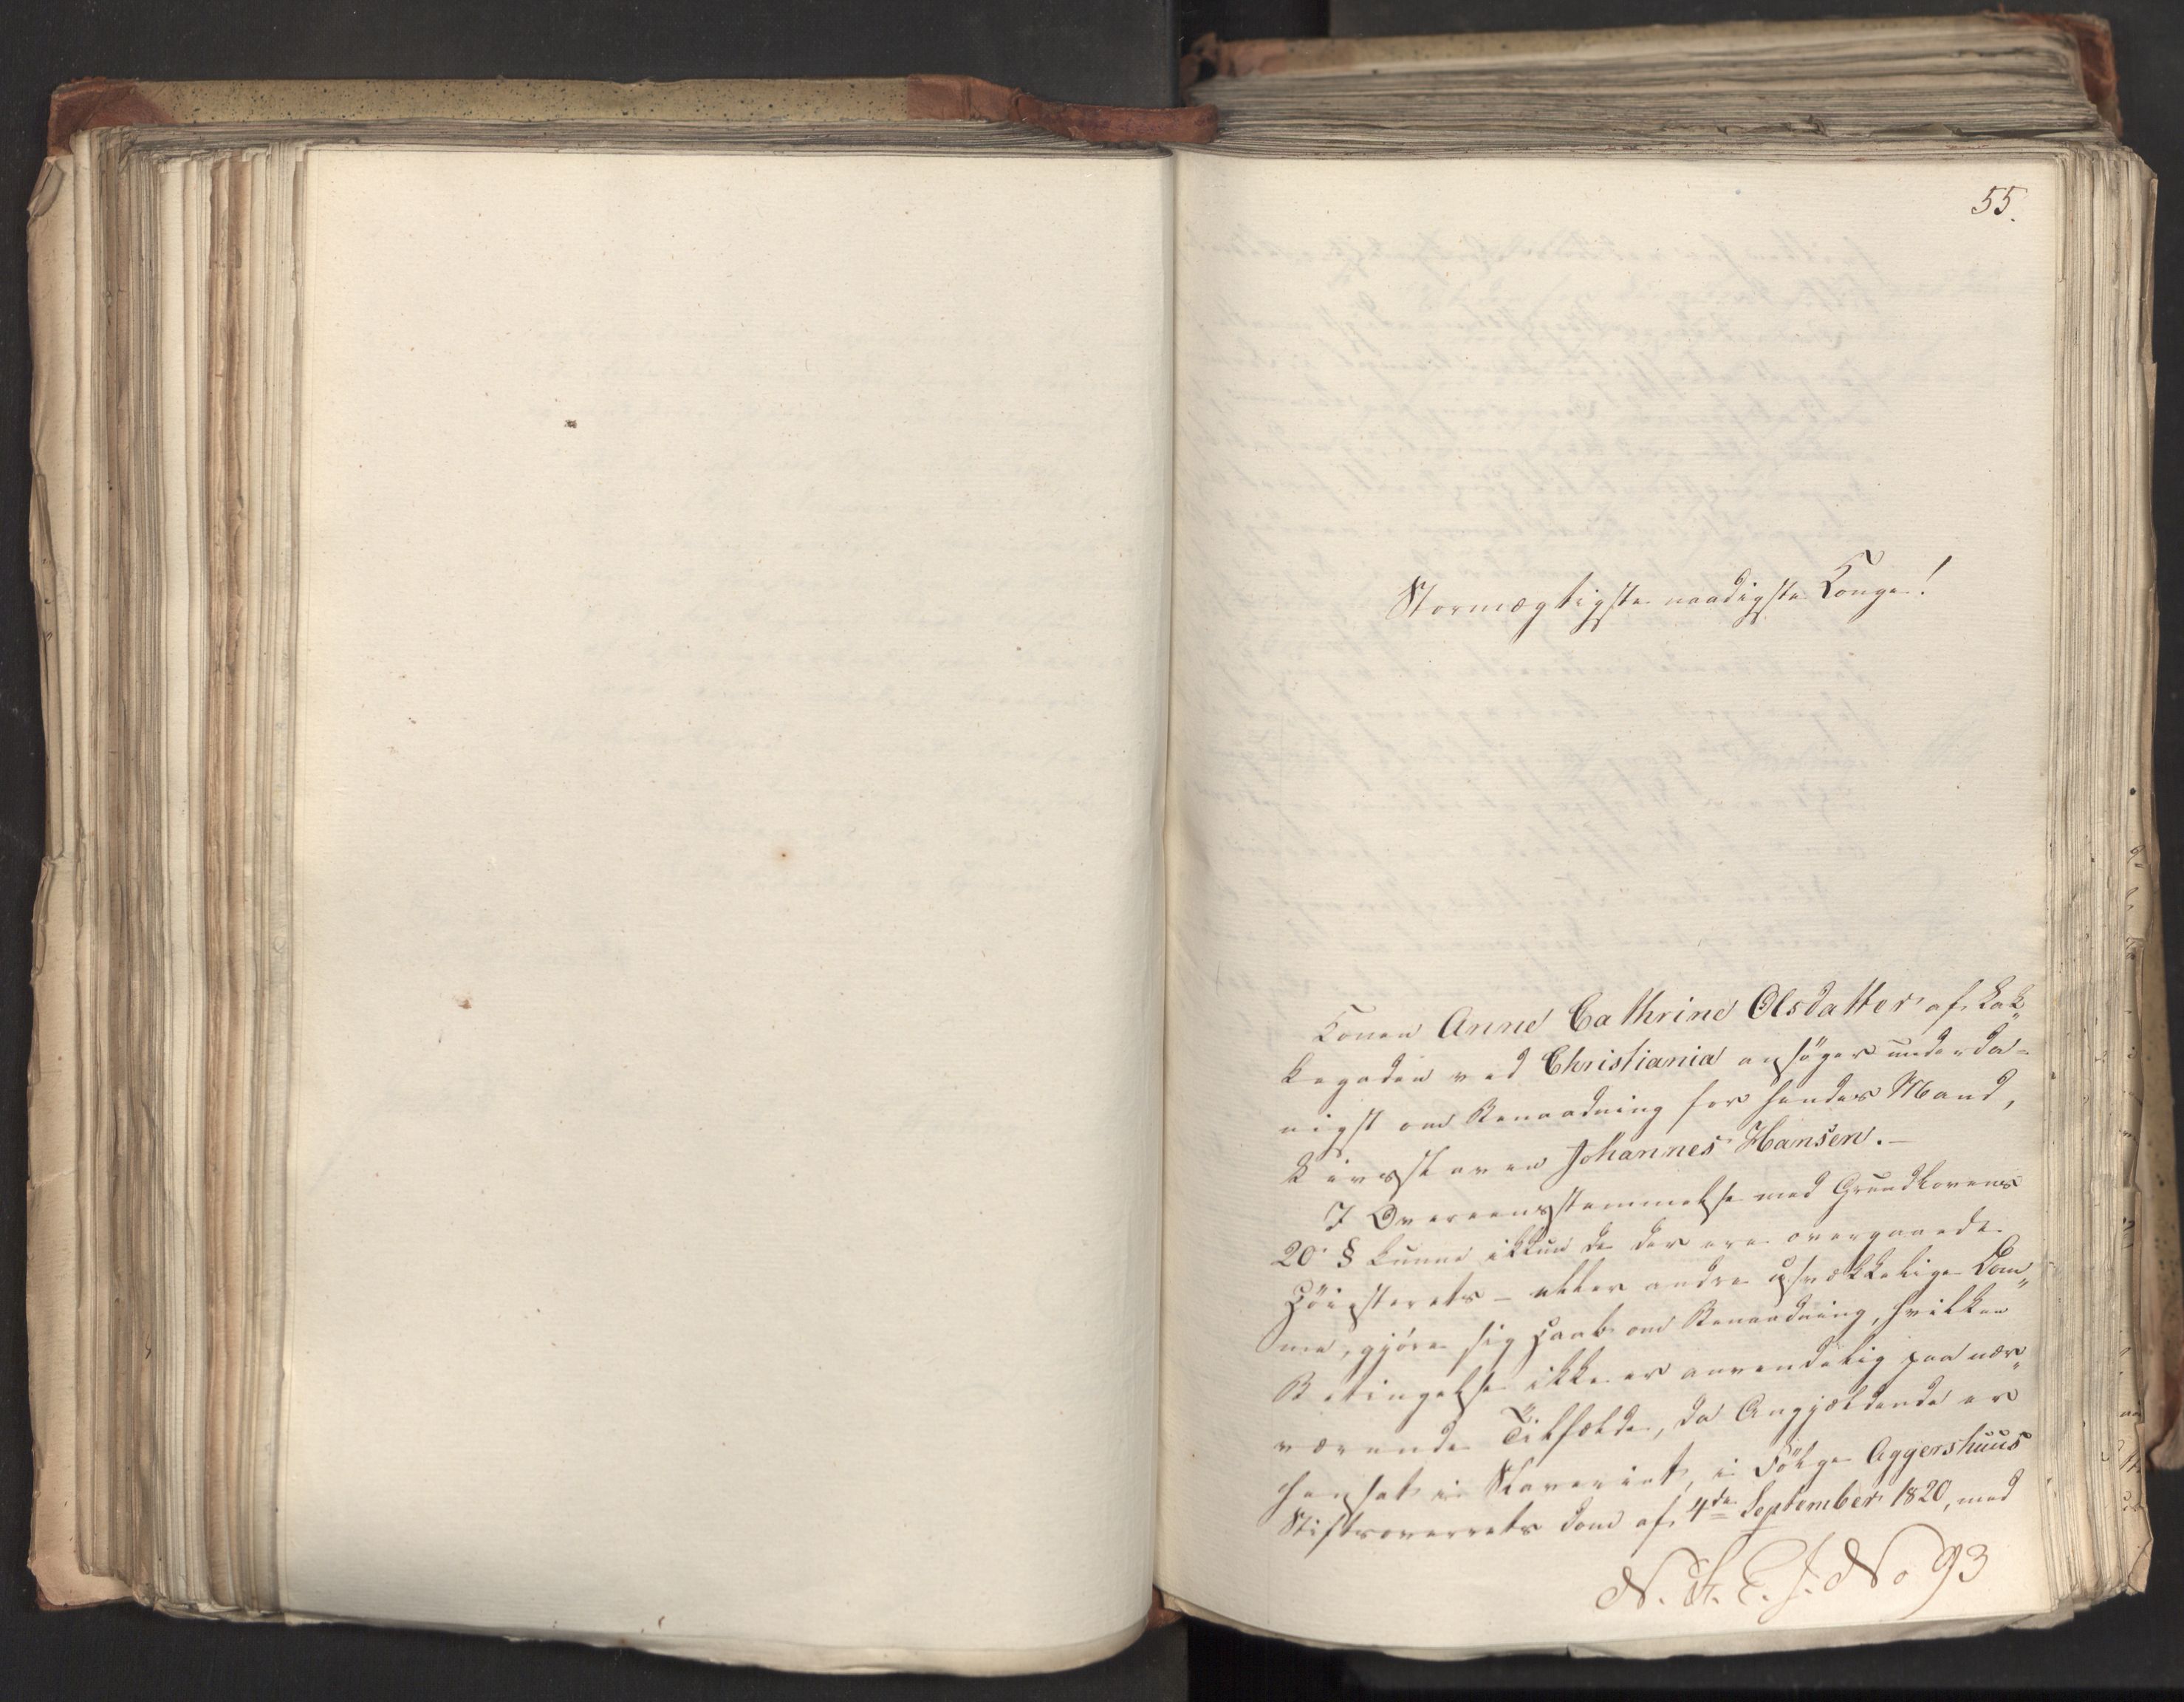 55.
Stormægtigste naadigste Konge!
Konen Anne Cathrine Olsdatter af Lak„
kegaden ved Christiania ansøger underda=
nigst om Benaadning for hendes Mand,
Livsslaven Johannes Hansen.—
I Overeensstemmelse med Grundlovens
20 § kunne ikkun de der ere overgaaede
Höiesterets- eller andre uforkkelige Dom„
me, gjöre sig Haab om Benaadning, hvilken
Betingelse ikke er anvendelig paa nær„
værende Tilfælde, da Angjældende er
hensat i Slaveriet, i Fölge Aggershuus
Stiftsoverrets Dom af 4de September 1820, med
N. St. E. J. No 93